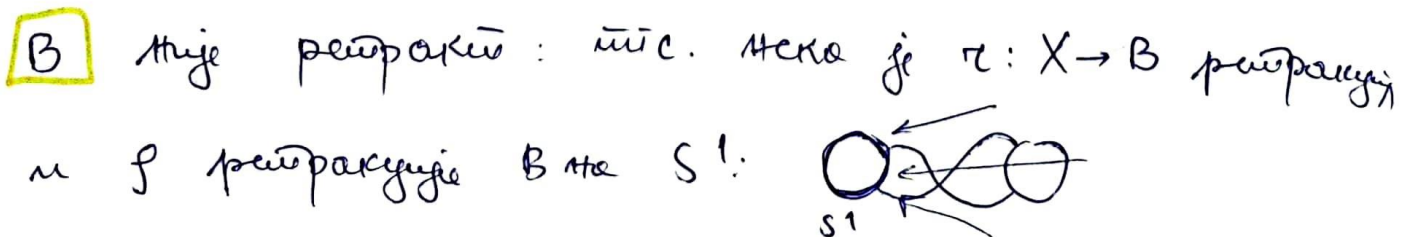 B није ретракт: ппс. нека је r: X → B ретракција
и ρ ретракција B на S¹:
S1